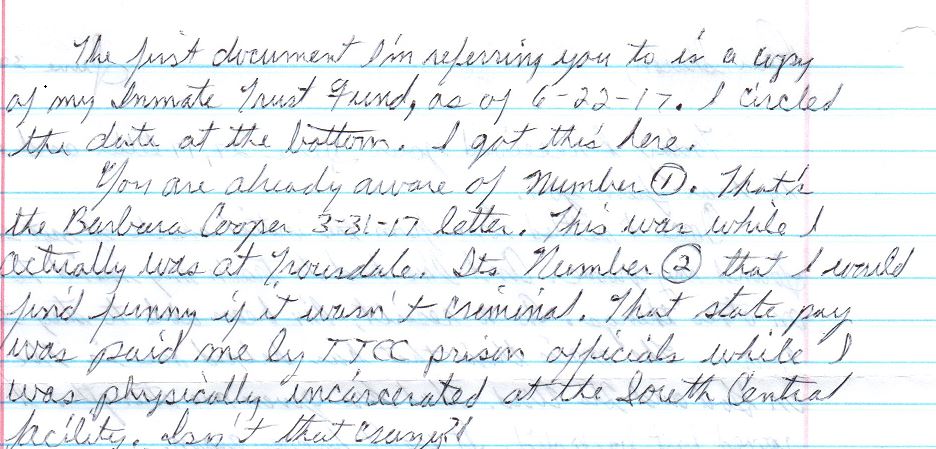 The first document I'm referring you to is a copy
of my Inmate Trust Fund, as of 6-22-17. I circled
the date at the bottom. I got this here.
You are already aware of Number ①. That's
the Barbara Cooper 3-31-17 letter. This was while I
actually was at Trousdale. Its Number ② that I would
find funny if it wasn't criminal. That state pay
was paid me by TTCC prison officials while I
was physically incarcerated at the South Central
facility. Isn't that crazy?!